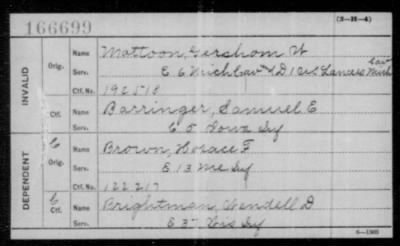 (3-H-4)
166699
INVALID
Orig.
Name Mattoon, Gershom W
Serv. E 6 Mich Cav & D 1 U.S. Lancers Mich Cav
Ctf. No. 192518
Ctf.
Name Barringer, Samuel E
Serv. E 5 Iowa Inf
DEPENDENT
C
Orig.
Name Brown, Horace F
Serv. E 13 Me Inf
Ctf. No. 122217
C
Ctf.
Name Brightman, Wendell D
Serv. E 3 Wis Inf
6-1305